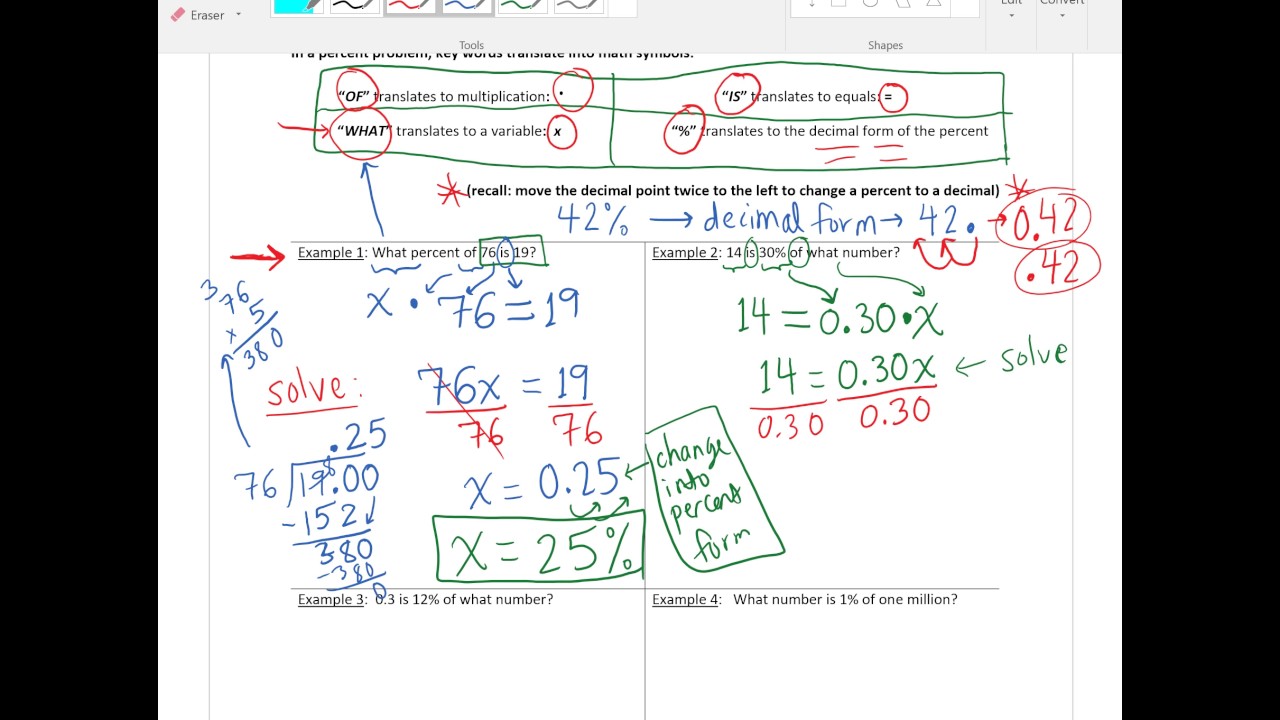 Eraser
Edit
Convert
Tools
Shapes
In a percent problem, key words translate into math symbols.
"OF" translates to multiplication: ·
"IS" translates to equals: =
"WHAT" translates to a variable: x
"%" translates to the decimal form of the percent
(recall: move the decimal point twice to the left to change a percent to a decimal)
42% → decimal form → 42. → 0.42
.42
Example 1: What percent of 76 is 19?
x · 76 = 19
3
76
x 5
380
solve:
76x = 19
76 76
.25
76 19.00
8
-152
380
-380
0
x = 0.25
x = 25%
change
into
percent
form
Example 2: 14 is 30% of what number?
14 = 0.30 · x
14 = 0.30x ← solve
0.30 0.30
Example 3: 0.3 is 12% of what number?
Example 4: What number is 1% of one million?